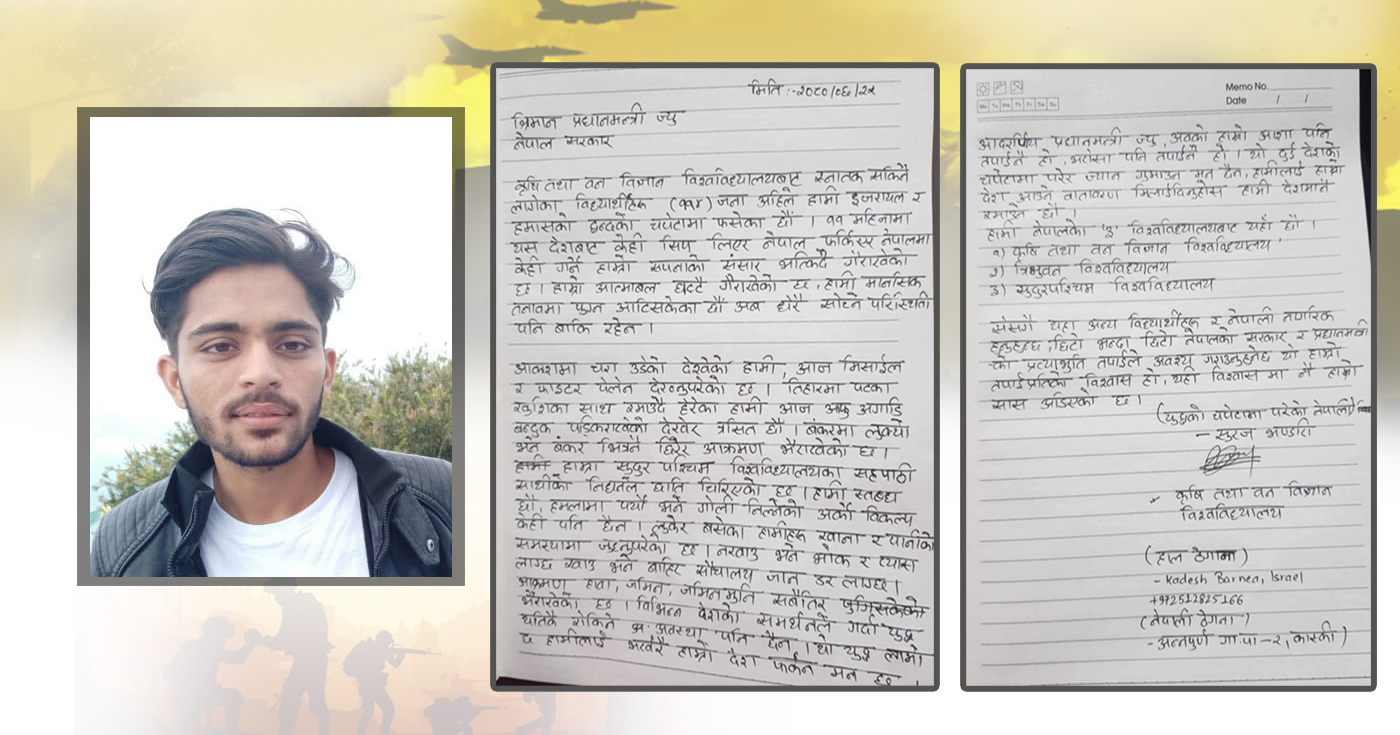 मिति :- २०८०/०६/२४
श्रिमान प्रधानमन्त्री ज्यु
नेपाल सरकार
कृषि तथा वन विज्ञान विश्वविद्यालयबाट स्नातक सकिनै
लागेका विद्यार्थीहरू (११४) जना अहिले हामी इजरायल र
हमासको द्वन्दको चपेटामा फसेका छौं । ११ महिनामा
यस देशबाट केही सिप लिएर नेपाल फर्किएर नेपालमा
केही गर्ने हाम्रो सपनाको संसार भत्किदै गैराखेको
छ । हाम्रो आत्मबल घट्दै गैराखेको छ, हामी मानसिक
तनावमा पुग्न आटिसकेका छौं अब धेरै सोच्ने परिस्थिती
पनि बाकि रहेन ।
आकाशमा चरा उडेको देखेका हामी, आज मिसाईल
र फाइटर प्लेन देख्नुपरेको छ । तिहारमा पटका
खुशिका साथ रमाउदै हेरेका हामी आज आफु अगाडि
बन्दुक पड्किराखेको देखेर त्रसित छौं । बंकरमा लुक्यो
भने बंकर भित्रनै छिरेर आक्रमण भैराखेको छ ।
हामी हाम्रा सुदुर पश्चिम विश्वविद्यालयका सहपाठी
साथीको निधनले छाति चिरिएको छ । हामी स्तब्ध
छौं, हमलामा पर्यौ भने गोली निल्नेको अर्को विकल्प
केही पनि छैन । लुकेर बसेका हामीहरू खाना र पानीको
समस्यामा जुध्नुपरेको छ । नखाउ भने भोक र प्यास
लाग्छ खाउ भने बाहिर सौचालय जान डर लाग्छ ।
आक्रमण हावा, जमिन, जमिनमुनि सबैतिर पुगिसकेको
भैराखेको छ । विभिन्न देशको समर्थनले गर्दा युद्ध
यतिकै रोकिने अवस्था पनि छैन । यो युद्ध लामो
छ हामीलाई भरखरै हाम्रो देश फर्कन मन छ ।
Memo No.
Date / /
Mo Tu We Th Fr Sa Su
आदरणिय प्रधानमन्त्री ज्यु, अबको हाम्रो आशा पनि
तपाईनै हो, भरोसा पनि तपाईनै हो । यो दुई देशको
चपेटामा परेर ज्यान गुमाउन मन छैन, हामीलाई हाम्रो
देश आउने वातावरण मिलाईदिनुहोस हामी देशमानै
रमाउने छौं ।
हामी नेपालका '३' विश्वविद्यालयबाट यहाँ छौं ।
१) कृषि तथा वन विज्ञान विश्वविद्यालय
२) त्रिभुवन विश्वविद्यालय
३) सुदुरपश्चिम विश्वविद्यालय
सँसगै यहा अन्य विद्यार्थीहरू र नेपाली नागरिक
हुनुहुन्छ, छिटो भन्दा छिटो नेपालको सरकार र प्रधानमन्त्री
को प्रत्याभुति तपाईले अवश्य गराउनुहुनेछ यो हाम्रो
तपाईप्रतिको विश्वास हो, यही विश्वास मा नै हाम्रो
सास अडिएको छ ।
(युद्धको चपेटामा परेको नेपाली)
- सुरज भण्डारी
- कृषि तथा वन विज्ञान
विश्वविद्यालय
(हाल ठेगाना)
- Kadesh Barnea, Israel
+972512825166
(नेपाली ठेगाना)
- अन्नपुर्ण गा.पा - २, कास्की )